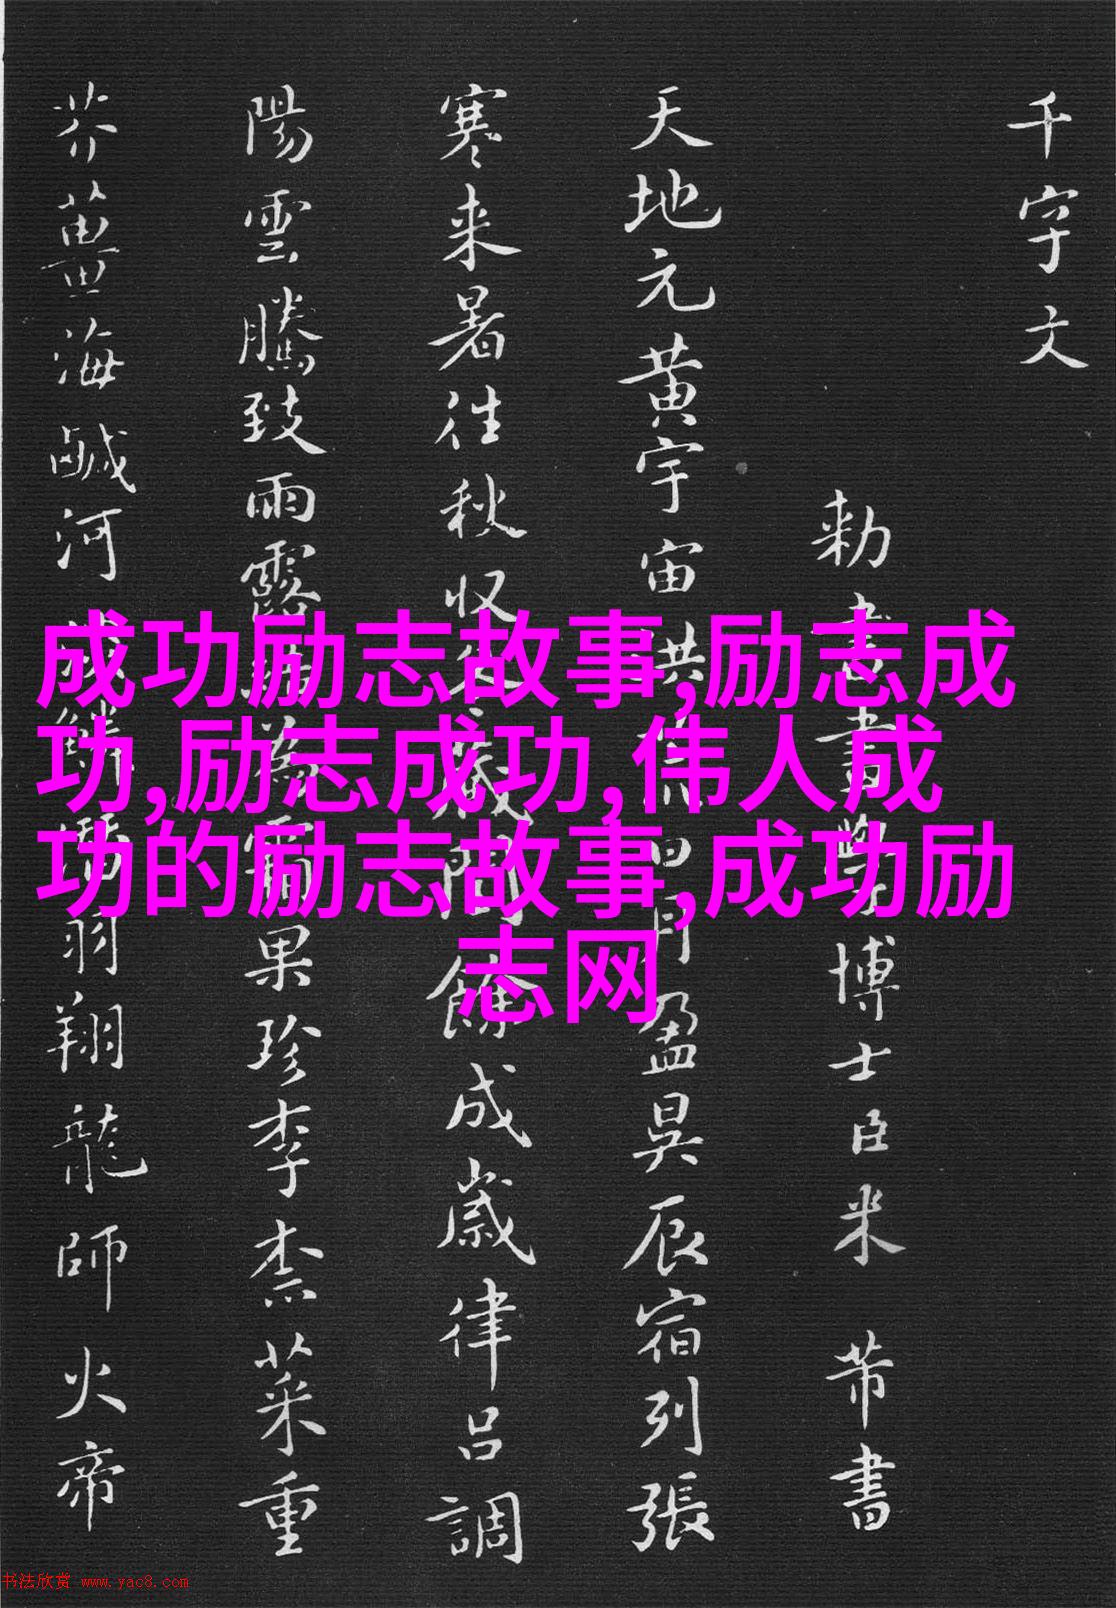 千字文
勅書書學博士臣米芾書
天地元黄宇宙洪荒日月盈昃辰宿列張
寒来暑往秋收冬藏閏餘成歲律吕調
陽雲騰致雨露結為霜果珍李柰菜重
芥薑海鹹河淡鱗潛羽翔龍師火帝
成功励志故事,励志成
功,励志成功,伟人成
功的励志故事,成功励
志网
书法欣赏 www.yac8.com